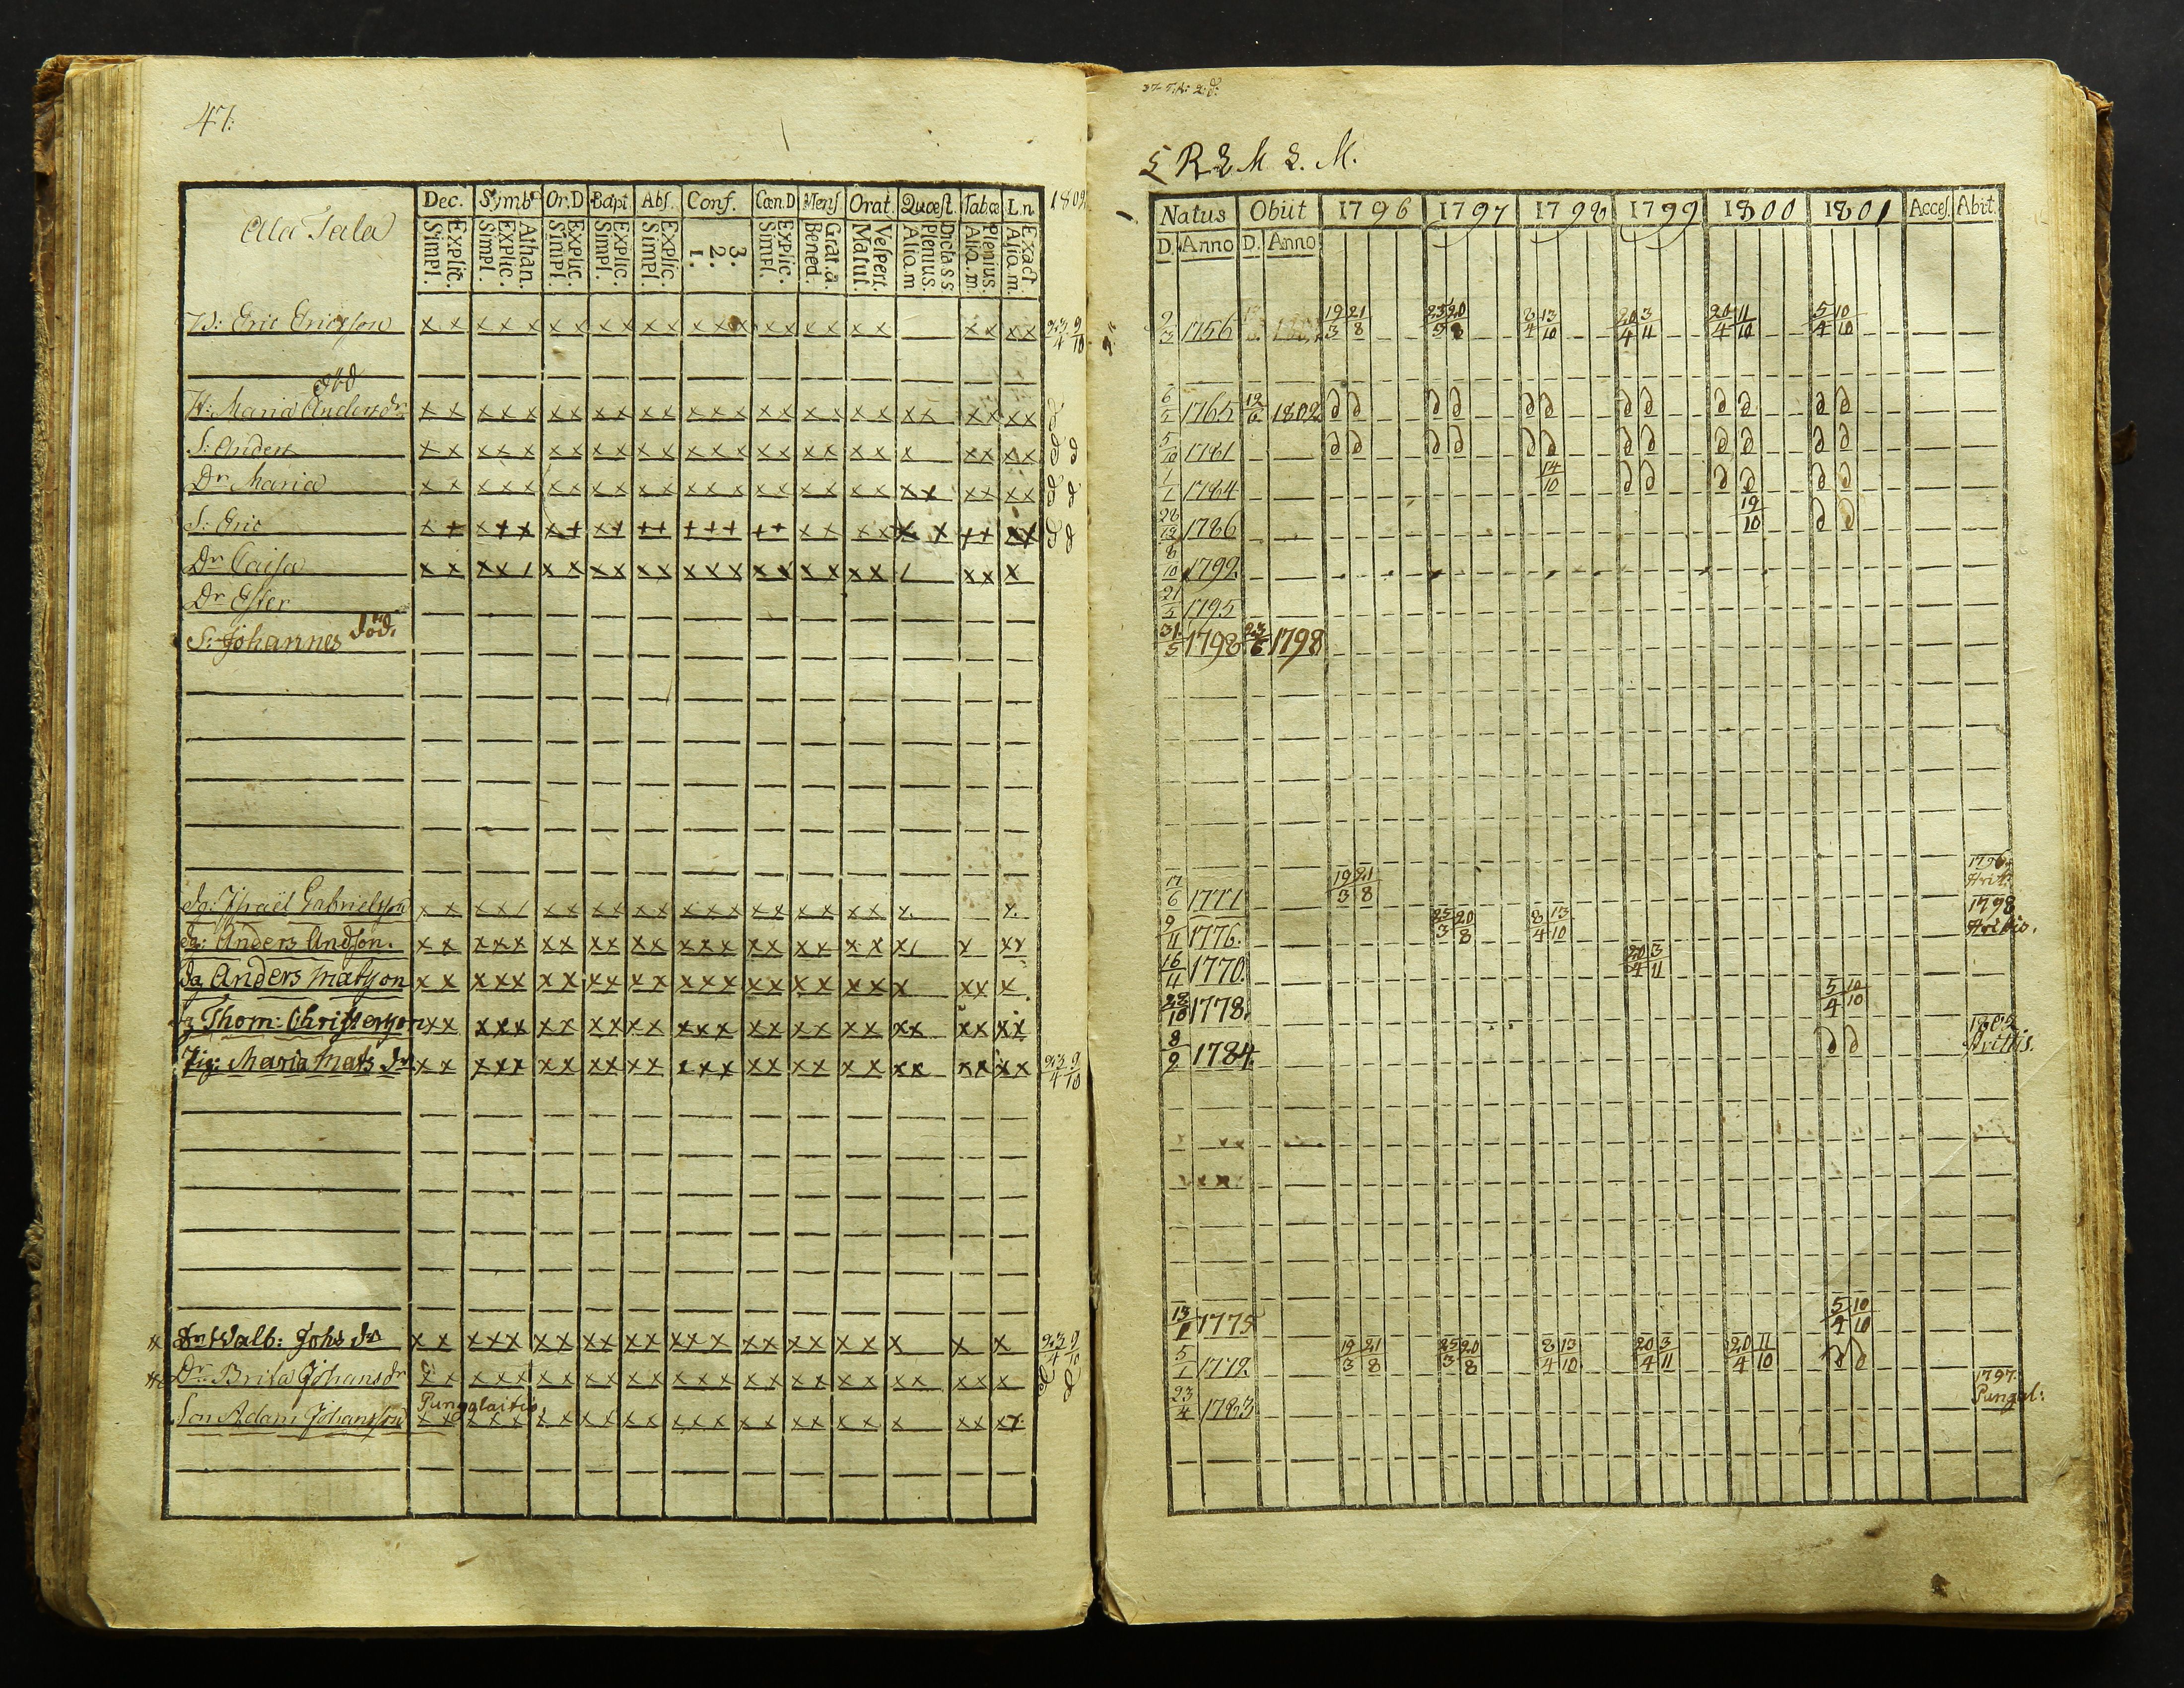 47:
Ala Tala
Dec. Symb. Or.D Bapt. Abs. Conf. Cœn.D Mens. Orat. Quæst. Tab.œ L.n. 1802
Explic. Simpl. Athan. Explic. Simpl. Explic. Simpl. Explic. Simpl. Explic. Simpl. 3. 2. 1. Explic. Simpl. Grat.a. Bened. Vespert. Matut. Dic.la s s Plenius. Alia.m Plenius. Alia.m. Exact Alia.m.
W: Eric Ericsson x x x x x x x x x x x x x x x x x x x x x x x 23/4 9/10
död
H: Maria Andersdr x x x x x x x x x x x x x x x x x x x x x x x x
S: Anders x x x x x x x x x x x x x x x x x x x x x x x
Dr Maria x x x x x x x x x x x x x x x x x x x x x x x x
S: Eric x + x + x x + x + + + + + + + + x x x x x x + + x x
Dr Caisa x x x x / x x x x x x x x x x x x x x x / x x x
Dr Ester
S: Johannes död.
Dg: Israel Gabrielsson x x x x / x x x x x x x x x x x x x x x x. x.
Dg: Anders Andsson. x x x x x x x x x x x x x x x x x x x x x / x x x
Dg Anders Matsson x x x x x x x x x x x x x x x x x x x x x x x x
Thom: Christersson x x x x x x x x x x x x x x x x x x x x x x x x x x
Pig: Maria Mats Dr. x x x x x x x x x x x x x x x x x x x x x x x x x x 23/4 9/10
Dr Walb: Johs Dr x x x x x x x x x x x x x x x x x x x x x x x 23/4 9/10
Dr. Brita Johansdr x x x x x x x x x x x x x x x x x x x x x x x x
Pungalaitis
Son Adam Johansson x x x x x x x x x x x x x x x x x x x x x x x x x
L R L M L. M.
Natus Obiit 1796 1797 1798 1799 1800 1801 Acces. Abit.
D. Anno D. Anno
9/3 1756 19/3 21/8 25/3 20/8 8/4 13/10 20/4 3/11 20/4 11/10 5/4 10/10
1765 12/6 1802
5/10 1781
1/1 1784 14/10
28/12 1786 19/10
8/10 1792
21/5 1795
31/5 1798 23/6 1798
17/6 1771 19/3 21/8 1796
9/11 1776. 25/3 20/8 8/4 13/10 1798
16/4 1770. 20/4 3/11
28/10 1778. 5/4 10/10
8/2 1784 1802
13/1 1775 5/4 10/10
5/1 1772 19/3 21/8 25/3 20/8 8/4 13/10 20/4 3/11 20/4 11/10
23/4 1783 1797 Pungal: